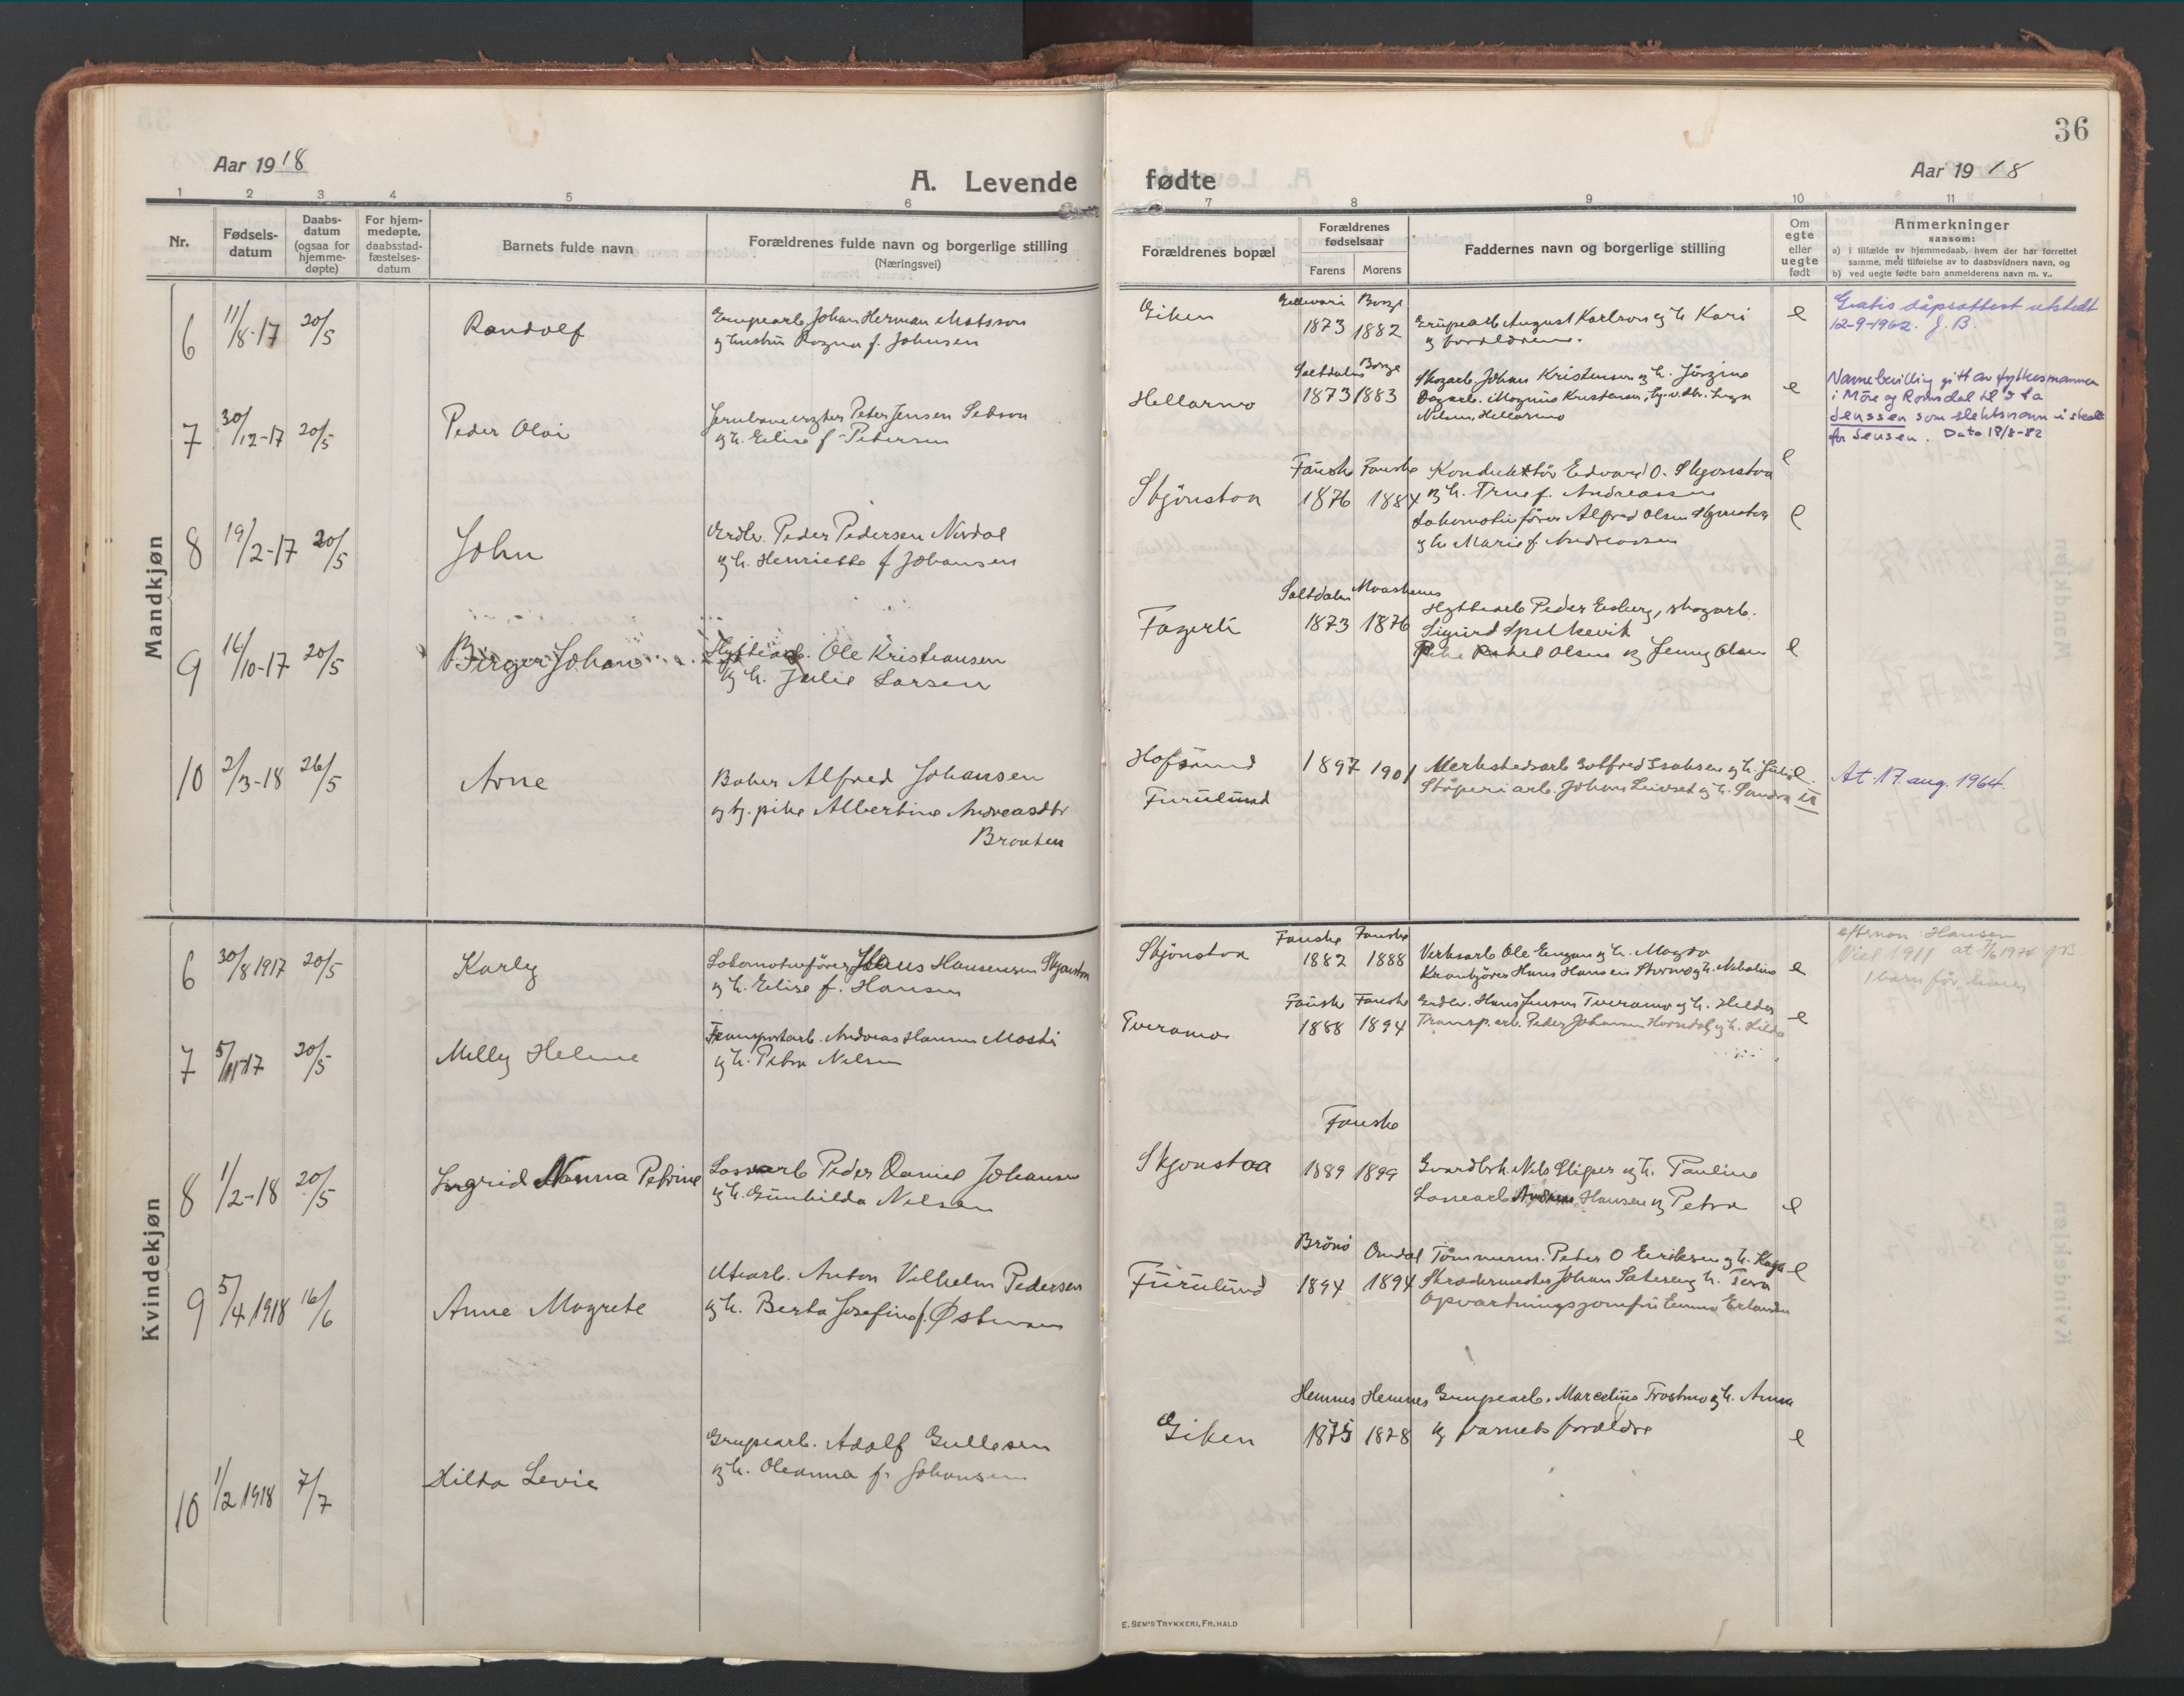 36
Aar 1918
A. Levende fødte
Aar 1918
1 2 3 4 5 6 7 8 9 10 11
Nr.
Fødsels-
datum
Daabs-
datum
(ogsaa for
hjemme-
døpte)
For hjem-
medøpte,
daabsstad-
fæstelses-
datum
Barnets fulde navn
Forældrenes fulde navn og borgerlige stilling
(Næringsvei)
Forældrenes bopæl
Forældrenes
fødselsaar
Farens Morens
Faddernes navn og borgerlige stilling
Om
egte
eller
uegte
født
Anmerkninger
saasom:
a) i tilfælde av hjemmedaab, hvem der har forrettet
samme, med tilføielse av to daabsvidners navn, og
b) ved uegte fødte barn anmelderens navn m. v..
Mandkjøn
6 11/8-17 20/5 Randolf
Grupearb. Johan Herman Matsson
og hustru Ragna f. Johnsen
Giken
Gellivari Borge
1873 1882
Grupearb August Karlson og h. Kari
og forældrene.
e
Gratis dåpsattest utstedt
12-9-1962. J. B.
7 30/12-17 20/5 Peder Olai
Jernbanevogter Peter Jensen
og h. Elise f. Petersen
Hellarmo
Saltdalen Borge
1873 1883
Skogarb. Johan Kristensen og h. Jörgine
Dagarb. Magnus Kristensen,
Nilsen, Hellarmo
e
Navnebevilling gitt av fylkesmannen
i Möre og Romsdal til å ta
Jenssen som slektsnavn i stedet
for Jensen. Dato 18/8-82
8 19/2-17 20/5 John
Peder Pedersen Nordal
og h. Henriette f Johansen
Skjönstaa
Fauske Fauske
1876 1884
Konduktör Edvard O. Skjonstaa
og h. Trine f. Andreassen
Lokomotivförer Alfred Olsen Skjonstaa
og h. Marie f Andreassen
e
e
9 16/10-17 20/5 Birger Johan
Hyttearb. Ole Kristiansen
og h. Julie Larsen
Fagerli
Saltdalen Moskenes
1873 1876
Hyttearb Peder Eisberg, skogarb.
Sigurd Spilkevik
Pike Rakel Olsen og Jenny Olsen
e
10 2/3-18 26/5 Arne
Baker Alfred Johansen
og tj. pike Albertine Andreasdtr
Braaten
Hofsund
Furulund
1897 1901
Verkstedsarb Godtfred Isaksen og h. Julie
Stöperiarb. Johan Leivset og h. Sandra
u
At. 17. aug. 1964.
Kvindekjøn
6 30/8 1917 20/5 Karly
Lokomotivförer Hans Hansen Skjonstaa
og h. Elise f. Hansen
Skjönstaa
Fauske Fauske
1882 1888
Verksarb Ole Engan og h. Magda
Hans Hansen og h. Nikoline
e
efternavn Hansen
Viet 1911 at 7/6 1974 JB
1 barn för,
7 5/11-17 20/5 Melly Helene
Transportarb. Andreas Hansen Mosti
og h. Petra Nilsen
Tveramo
Fauske Fauske
1888 1894
Hans Jensen Tveramo og h. Hilda
Transp. arb. Peder Johansen og h. Hilda
e
8 1/2-18 20/5 Ingrid Nanna Petrine
Lossearb Peder Daniel Johansen
og h. Gunhilda Nilsen
Skjonstaa
Fauske
1889 1899
Nils Sliper og h. Pauline
Lossearb Andreas Hansen og Petra
e
9 5/4 1918 16/6 Anne Magrete
Utearb. Anton Vilhelm Pedersen
og h. Berta Josefine f. Østman
Furulund
Brönö
1894 1894
Tömmerm. Peter O Eriksen og h. Kaja
Skrædermester Johan Sæterbø og h.
Opvartningsjomfru Emma Erlandsen
e
10 1/2 1918 7/7 Hilda Levie
Grupearb. Adolf Gullesen
og h. Oleanna f. Johansen
Giken
Hemnes Hemnes
1875 1878
Grupearb. Marcelius Trostmo og h. Anna
og barnets forældre
e
E. SEM'S TRYKKERI, FR.HALD